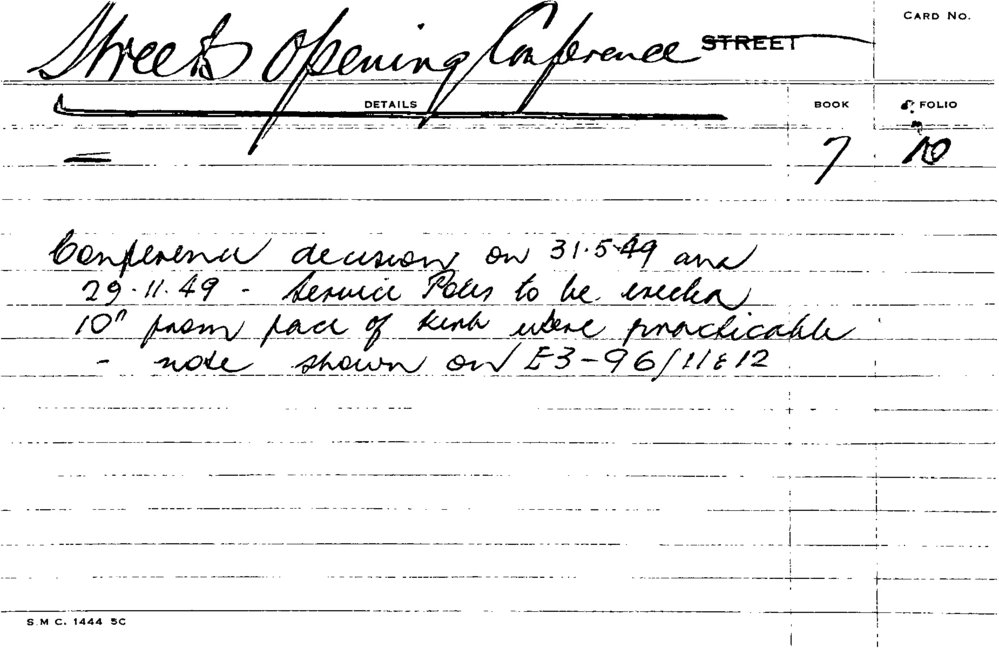 CARD No.
Streets Opening Conference STREET
DETAILS BOOK & FOLIO
7 10
Conference decision on 31.5.49 and
29.11.49 - Service Poles to be erected
10" from face of Kerb where practicable
- note shown on E3-96/11 & 12
S.M.C. 1444 5C